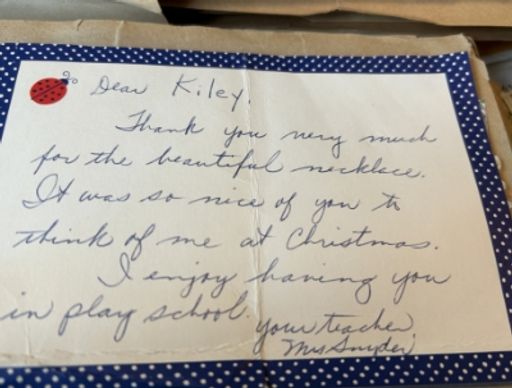 Dear Kiley,
Thank you very much
for the beautiful necklace.
It was so nice of you to
think of me at Christmas.
I enjoy having you
in play school.
your teacher,
Mrs Snyder